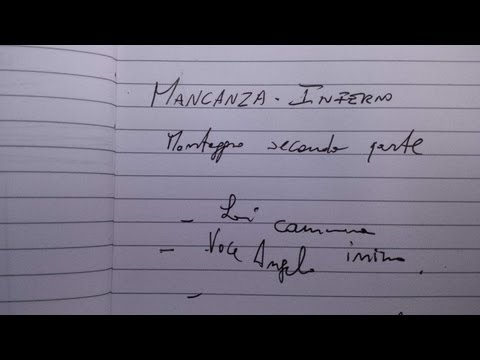 MANCANZA - INFERNO
Montaggio seconda parte
- Lui cammina
- Voce Angelo inizia.
-